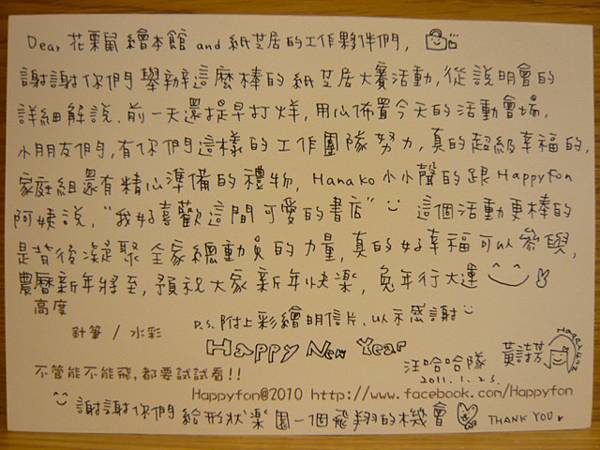 Dear 花栗鼠繪本館 and 紙芝居的工作夥伴們,
謝謝你們舉辦這麼棒的紙芝居大賽活動,從說明會的
詳細解說.前一天還提早打烊,用心佈置今天的活動會場,
小朋友們,有你們這樣的工作團隊努力,真的超級幸福的,
家庭組還有精心準備的禮物,Hanako小小聲的跟Happyfon
阿姨說,"我好喜歡這間可愛的書店" 這個活動更棒的
是背後凝聚全家總動員的力量,真的好幸福可以參與,
農曆新年將至,預祝大家新年快樂,兔年行大運
高度
針筆 / 水彩
P.S.附上彩繪明信片.以示感謝
Happy New Year
汪哈哈隊 黃詩芬
Happyfon
2011.1.23.
不管能不能飛,都要試試看!!
Happyfon@2010 http://www.facebook.com/Happyfon
謝謝你們給形狀樂園一個飛翔的機會 THANK YOU